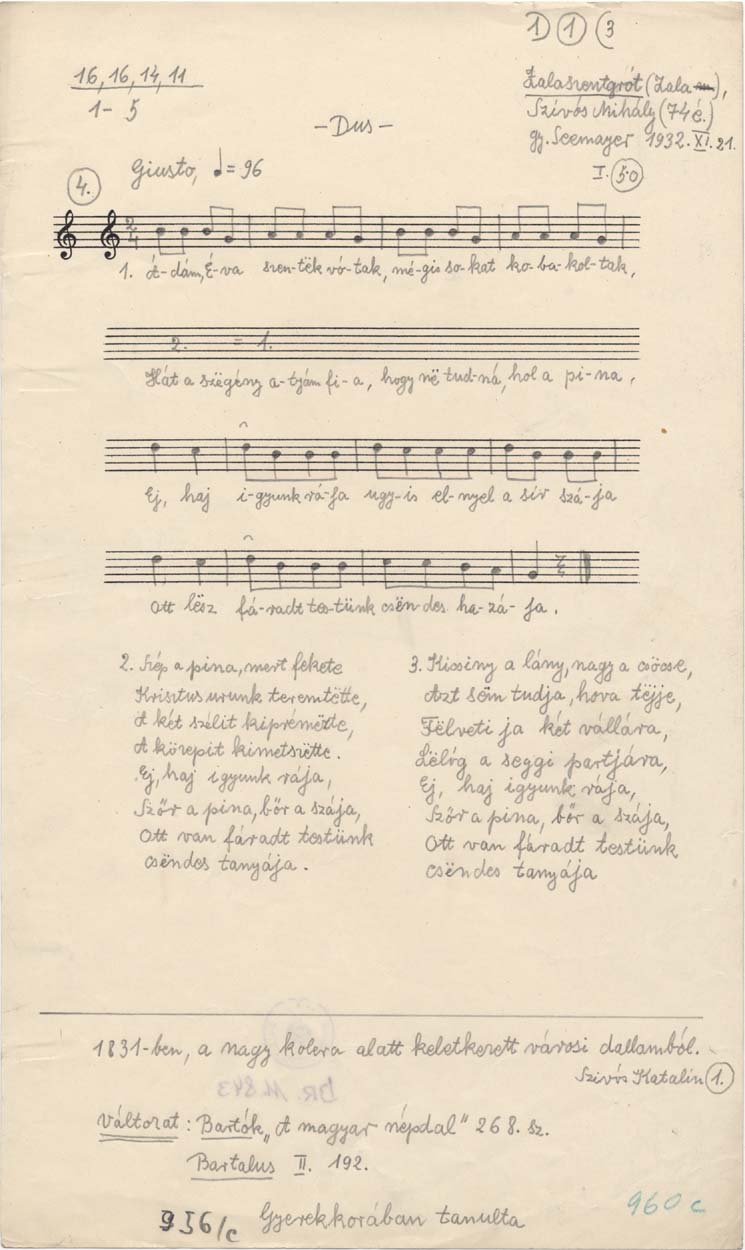 D ① ③
16, 16, 14, 11
1- 5
Zalaszentgrót (Zala m),
Szívós Mihály (74 é.)
gy. Seemayer 1932. XI. 21.
I. 50
- Dus -
4.
Giusto, ♩= 96
2/4
1. Á-dám, É-va szen-tëk vó-tak, mé-gis so-kat ko-ba-kol-tak,
2. = 1.
Hát a szëgény a-tyám fi-a, hogy në tud-ná, hol a pi-na,
Ej, haj i-gyunk rá-ja ugy-is el-nyel a sír szá-ja
Ott lësz fá-radt tes-tünk csën-des ha-zá-ja.
2. Szép a pina, mert fekete
Krisztus urunk teremtëtte,
A két szélit kiprémëzte,
A közepit kimetszëtte.
Ej, haj igyunk rája,
Szőr a pina, bőr a szája,
Ott van fáradt testünk
csëndes tanyája.
3. Kicsiny a lány, nagy a csöcse,
Azt sëm tudja, hova tëjje,
Fëlveti ja két vállára,
Lëlóg a seggi partjára,
Ej, haj igyunk rája,
Szőr a pina, bőr a szája,
Ott van fáradt testünk
csëndes tanyája
1831-ben, a nagy kolera alatt keletkezett városi dallamból.
Szívós Katalin 1.
DR. M. 843
Változat: Bartók „A magyar népdal" 268. sz.
Bartalus II. 192.
956/c Gyerekkorában tanulta
960 c